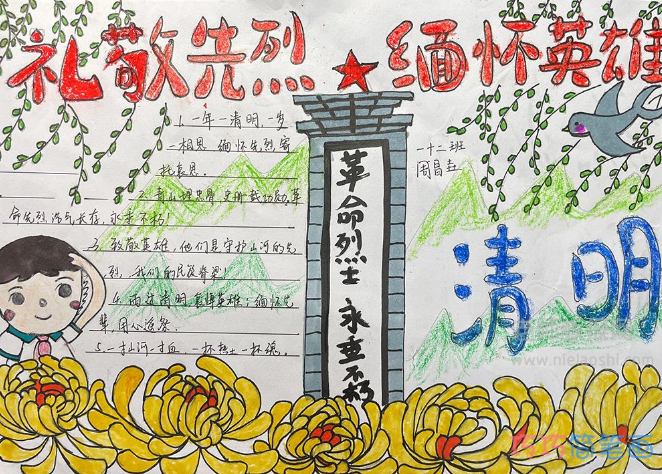 礼敬先烈★缅怀英雄
1.一年一清明,一岁
一相思 缅怀先烈寄
托哀思.
2.青山埋忠骨 史册载功勋.革
命先烈浩气长存,永垂不朽!
3.致敬英雄,他们是守护山河的先
烈,我们的民族脊梁!
4.雨落清明 英雄;缅怀先
辈,用心追祭.
5.一寸山河一寸血,一杯热土一杯魂。
革命烈士 永垂不朽
一十二班
周昌垚
清明
www.nielaoshi.com
简笔画